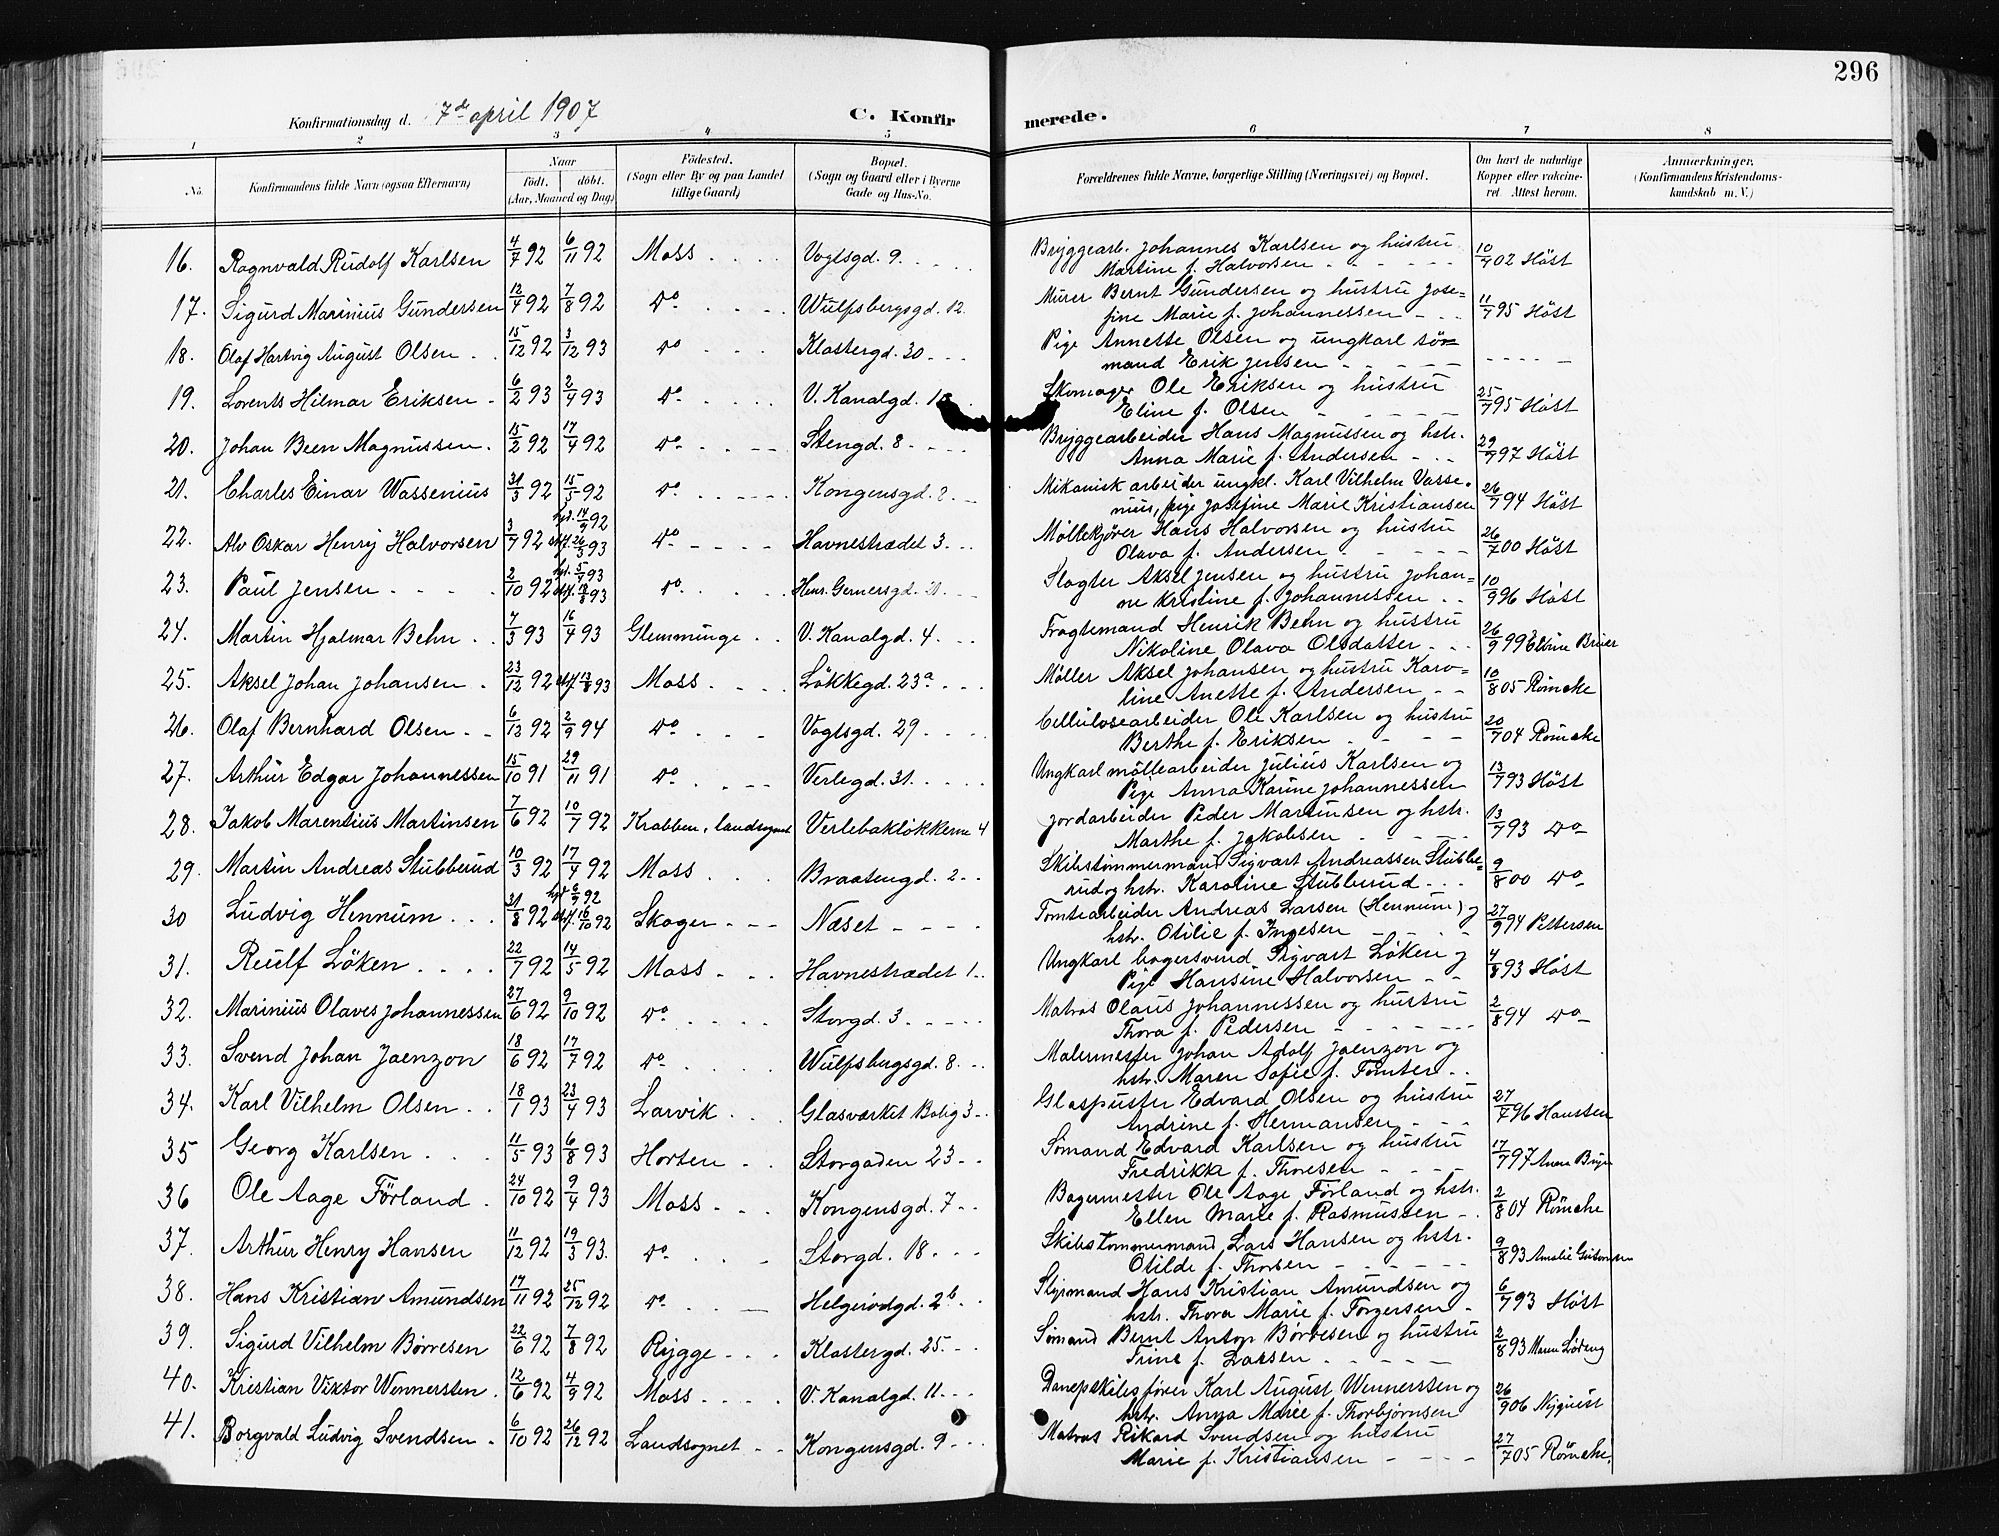 296
Konfirmationsdag d. 7de april 1907 C. Konfirmerede.
1 2 3 4 5 6 7 8
No. Konfirmandens fulde Navn (ogsaa Efternavn). Naar Födt. döbt. (Aar, Maaned og Dag) Födested. (Sogn eller By og paa Landet tillige Gaard) Bopæl. (Sogn og Gaard eller i Byerne Gade og Hus-No. Forældrenes fulde Navne, borgerlige Stilling (Næringsvei) og Bopæl. Om havt de naturlige Kopper eller vaccineret. Attest herom. Anmærkninger. (Konfirmandens Kristendomskundskab m. V.)
16. Ragnvald Rudolf Karlsen 4/7 92 6/11 92 Moss Vogtsgd. 9. Bryggearb. Johannes Karlsen og hustru 10/7 02 Höst
Martine f. Halvorsen
17. Sigurd Marinius Gundersen 12/4 92 7/8 92 do Wulfsbergsgd. 12. Murer Bernt Gundersen og hustru Jose= 11/7 95 Höst
fine Marie f. Johannessen
18. Olaf Hartvig August Olsen 15/12 92 3/12 93 do Klostergd. 30 Pige Annette Olsen og ungkarl sö=
mand Erik Jensen
19. Lorents Hilmar Eriksen 6/2 93 2/4 93 do V. Kanalgd. Skomager Ole Eriksen og hustru 25/7 95 Höst
Eline f. Olsen
20. Johan Been Magnussen. 15/2 92 17/4 92 do Stengd. 8 Bryggearbeider Hans Magnussen og hstr. 29/7 97 Höst
Anna Marie f. Andersen
21. Charles Einar Wassenius 31/3 92 15/5 92 do Kongensgd. 2 Mikanisk arbeider ungkl. Karl Vilhelm Vasse= 26/7 94 Höst
nius, pige Josefine Marie Kristiansen
22. Alv Oskar Henry Halvorsen 3/7 92 hjd. 14/9 92 stf. 26/3 93 do Havnestrædet 3 Möllekjörer Hans Halvorsen og hustru 26/7 00 Höst
Olava f. Andersen
23. Paul Jensen 2/10 92 hjd. 5/4 93 93 do Henr. Gernersgd. Slagter Aksel Jensen og hustru Johan= 10/9 96 Höst
ne Kristine f. Johannessen
24. Martin Hjalmar Behn 7/3 93 16/4 93 Glemminge V. Kanalgd. 4. Fragtemand Henrik Behn og hustru 26/9 99
Nikoline Olava Olsdatter
25. Aksel Johan Johansen 23/12 92 stf. 13/8 93 Moss Lökkegd. 23a Möller Aksel Johansen og hustru Karo= 10/8 05 Römcke
line Anette f. Andersen
26. Olaf Bernhard Olsen 6/12 92 2/9 94 do Vogtsgd. 29 Cellulosearbeider Ole Karlsen og hustru 20/7 04 Römcke
Berthe f. Eriksen
27. Arthur Edgar Johannessen 15/10 91 29/11 91 do Verlegd. 31. Ungkarl möllearbeider Julius Karlsen og 13/7 93 Höst
Pige Anna Karine Johannessen
28. Jakob Marentius Martinsen 7/6 92 10/7 92 Krabben, landsognet Verlebakløkkerne 4 Jordarbeider Peder Martinsen og hstr. 13/7 93 do
Marthe f. Jakobsen
29. Martin Andreas Stubberud 10/3 92 17/4 92 Moss Braatengd. 2 Skibstømmermand Sigvart Andreassen Stubbe= 9/8 00 do
rud og hstr. Karoline Stubberud
30 Ludvig Hennum 31/8 92 hjd 6/9 92 stf. 16/10 92 Skoger Næset Tomtearbeider Andreas Larsen (Hennum) og 27/9 94 Pettersen
hstr. Otilie f. Ingesen
31. Reulf Löken 22/7 92 14/5 92 Moss Havnestrædet 1. Ungkarl bagersvend Sigvart Löken og 4/8 93 Höst
Pige Hansine Halvorsen
32. Marinius Olaves Johannessen 27/6 92 9/10 92 do Storgd. 3 Matros Olaus Johannessen og hustru 2/8 94 do
Thora f. Pedersen
33. Svend Johan Jaenzon 18/6 92 17/7 92 do Wulfsbergsgd. 8 Malermester Johan Adolf Jaenzon og
hstr. Maren Sofie f. Tomter
34. Karl Vilhelm Olsen 18/1 93 23/4 93 Larvik Glasværket Bolig 3 Glaspuster Edvard Olsen og hustru 27/7 96 Hanssen
Andrine f. Hermansen
35 Georg Karlsen 11/5 93 6/8 93 Horten Storgaden 23 Sømand Edvard Karlsen og hustru 17/7 97 Anna
Fredrikke f. Thoresen
36 Ole Aage Förland 24/10 92 9/4 93 Moss Kongensgd. 7 Bagermester Ole Aage Förland og hstr. 2/8 04 Römcke
Ellen Marie f. Rasmussen
37. Arthur Henry Hansen 11/12 92 19/3 93. do Storgd. 18 Skibstømmermand Lars Hansen og hstr. 9/8 93 Amalie
Otilde f. Thorsen
38. Hans Kristian Amundsen 17/11 92 25/12 92 do Helgerödgd. 2b Styrmand Hans Kristian Amundsen og 6/7 93 Höst
hstr. Thora Marie f. Torgersen
39. Sigurd Vilhelm Børresen 22/6 92 7/8 92 Rygge Klostergd. 25 Sømand Bernt Anton Børresen og hustru 2/8 93 Maren
Trine f. Larsen
40. Kristian Viktor Wennersten 12/6 92 4/9 92 Moss V. Kanalgd. 11. Dampskibsfører Karl August Wennersten og 26/9 06 Nyquist
hstr. Anna Marie f. Thorbjørnsen
41. Borgvald Ludvig Svendsen 6/10 92 26/12 92 Landsognet Kongensgd. 9 Matros Rikard Svendsen og hustru 27/7 05 Römcke.
Marie f. Kristiansen